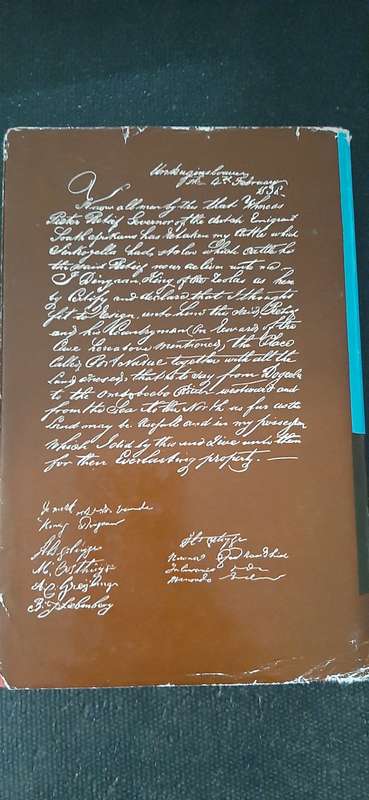 the 4th February
Know all men by this that Whereas
Pieter Retief Governor of the dutch Emigrant
South afrikans has Retaken my Cattle which
Sinkonyella had stolen which Cattle he
the said Retief now deliver unto me I
Dingaan King of the Zoolas as here
by Certify and declare that I thought
fit to Resign unto him the said Retief
and his Countrymen (on Reward of the
Case hereabove Mentioned) the Place
Called Port Natal together with all the
Land annexed that is to say from Dogeela
to the Omsoboebo River westward and
from the Sea to the North as far as the
Land may be Usefull and in my possession
Which I did by this and Give unto them
for their Everlasting property.—
King Dingaan
M. Oosthuyse
A C Greyling
B. J. Liebenberg